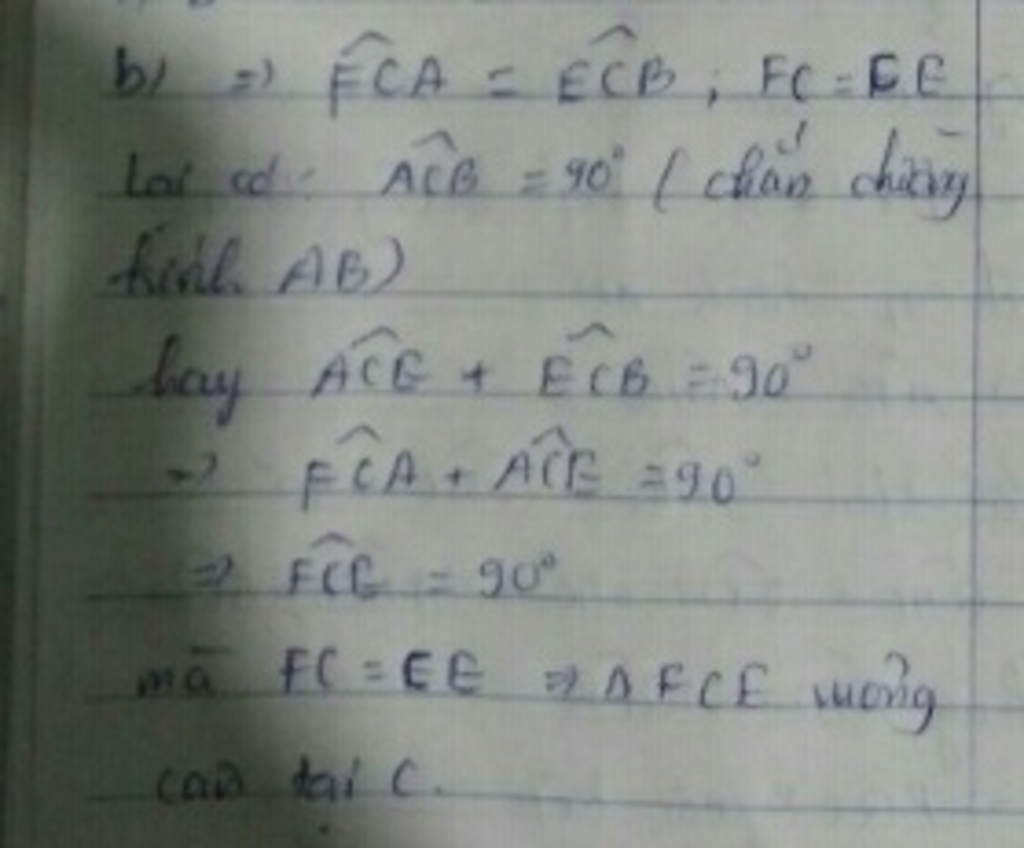 b) => \widehat{FCA} = \widehat{ECB} ; FC = CE
Lại có: \widehat{ACB} = 90° (chắn đường
kính AB)
hay \widehat{ACE} + \widehat{ECB} = 90°
=> \widehat{FCA} + \widehat{ACE} = 90°
=> \widehat{FCE} = 90°
mà FC = CE => Δ FCE vuông
cân tại C.